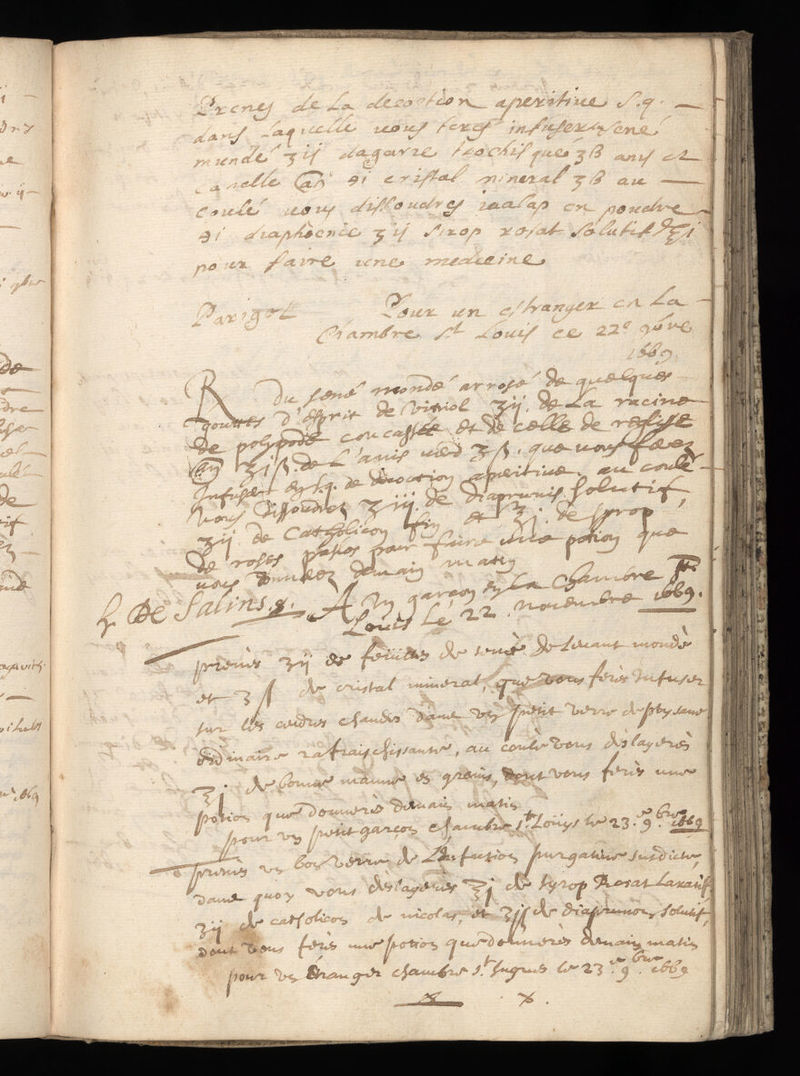 Prenes de la decoction aperitive s.q.
dans laquelle vous feres infuser sené
mundé ʒij dagaric trochisque ʒß anis et
canelle aā ℈i cristal mineral ʒß au
coulé vous dissoudres iaalap en poudre
℈i diaphoenic ʒij sirop rosat solutif ℥i
pour faire une medecine
Parigot Pour un estranger en la
Chambre St Louis ce 22e 9bre
1669
R Du sené mondé arrosé de quelques
gouttes d'esprit de vitriol ʒij. de la racine
de polypode concassée et de celle de reglisse
aā ʒiß. de l'anis verd ʒß. que vous feréz
Infuser en s.q. de decoction aperitive. au coulé
vous dissoudréz ʒiij. de diaprunis solutif,
ʒij. de Catholicon fin et ℥j. de syrop
de roses pasles pour faire une potion que
vous donnerez demain matin
De Salins. A un garcon en la Chambre St
Louis Le 22. novembre 1669.
prenés ʒij de feüilles de sené de levant mondé
et ʒß de cristal mineral, que vous ferés Infuser
sur les cendres chaudes dans un petit verre de ptysane
ordinaire rafraischissante, au coulé vous dislayerés
℥j. de bonne manne en grains, dont vous ferés une
potion que donnerés demain matin
pour un petit garcon chambre st. Loüys le 23.e 9.bre 1669
prenés un bon verre de L'infusion purgative susdicte,
dans quoy vous dislayerés ℥j de syrop Rosat Laxatif,
ʒij de catholicon de nicolas, et ʒiß de diaprunon solutif,
dont vous ferés une potion que donnerés demain matin
pour un étranger chambre st. hugues le 23.e 9.bre 1669